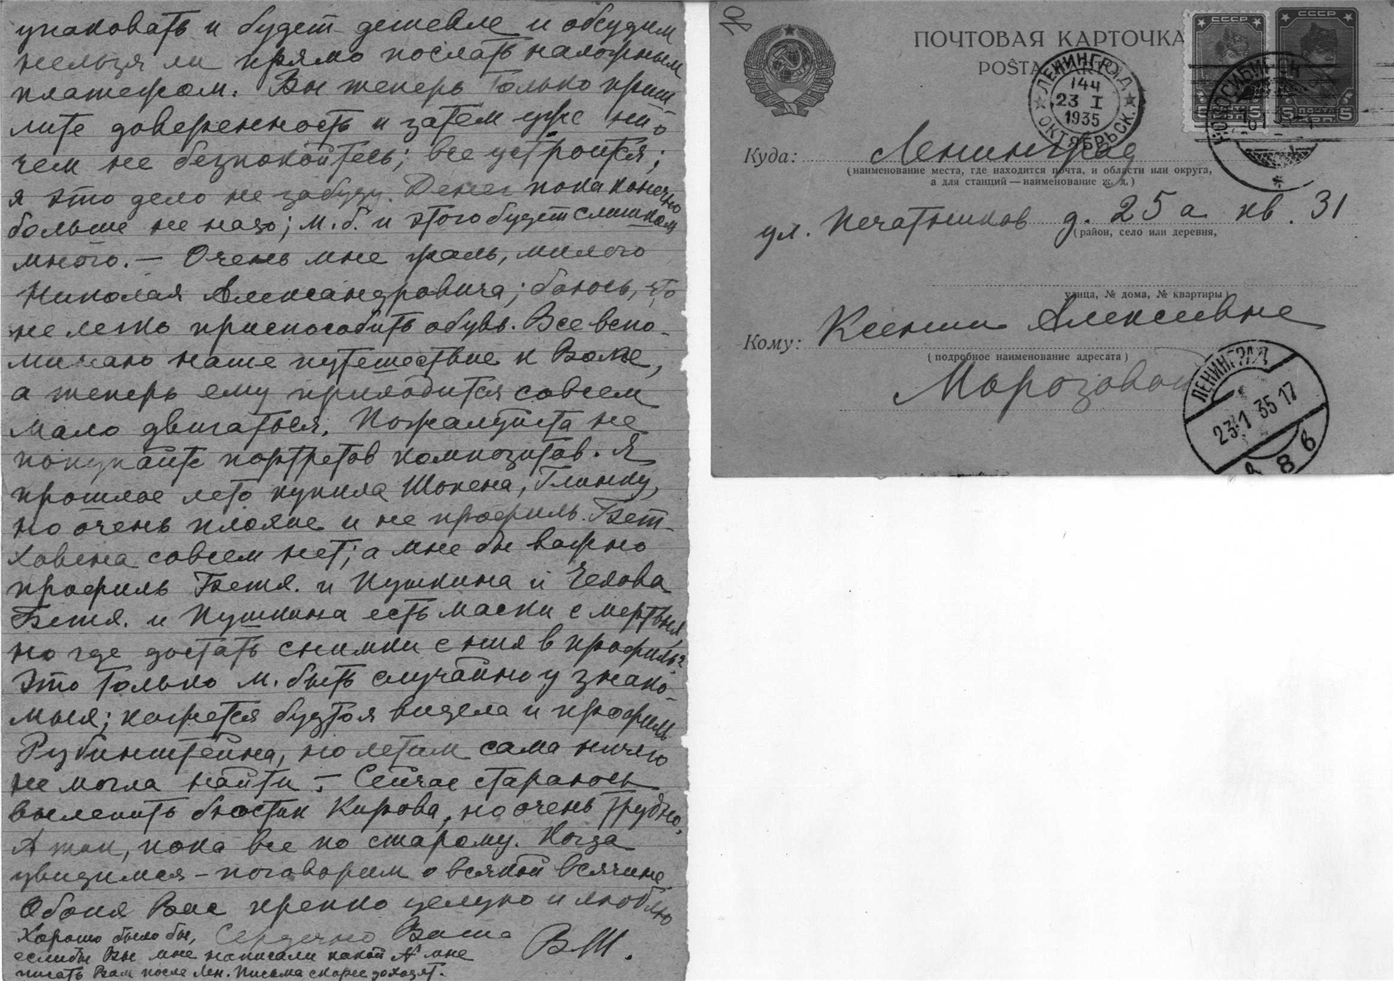 упаковать и будет дешевле и обсудим
нельзя ли прямо послать наложным
платежом. Вы теперь только приш-
лите доверенность и затем уже ни о
чем не безпокойтесь; все устроится;
я это дело не забуду. Денег пока конечно
больше не надо; м.б. и этого будет слишком
много. — Очень мне жаль, милого
Николая Александровича; боюсь, что
не легко приспособить обувь. Все вспо-
минаю наше путешествие к Вам,
а теперь ему приходится совсем
мало двигаться. Пожалуйста не
покупайте портретов композитов. Я
прошлое лето купила Шопена, Глинку,
но очень плохие и не профиль. Бет-
ховена совсем нет; а мне бы важно
профиль Бетх. и Пушкина и Чехова
Бетх. и Пушкина есть маски с мертвых,
но где достать снимки с них в профиль?
Это только м. быть случайно у знако-
мых; кажется будто я видела и профиль
Рубинштейна, но летом сама ничего
не могла найти. — Сейчас стараюсь
вылепить бюстик Кирова, но очень трудно.
А так, пока все по старому. Когда
увидимся — поговорим о всякой всячине.
Обоих Вас крепко целую и люблю
Сердечно Ваша
В.Ш.
Хорошо было бы,
если бы Вы мне написали какой № мне
писать Вам после Лен. Письма скорее доходят.
80
СССР
СССР
ПОЧТОВАЯ КАРТОЧКА
POSTA
ЛЕНИНГРАД
144
23 I
1935
ОКТЯБРЬСК.
ПОЧТА
5
5
Куда: Ленинград
(наименование места, где находится почта, и области или округа,
а для станций — наименование ж. д.)
ул. Печатников д. 25а кв. 31
(район, село или деревня,
улица, № дома, № квартиры)
Кому: Ксении Алексеевне
(подробное наименование адресата)
Морозовой
ЛЕНИНГРАД
23 1 35 17
8 в